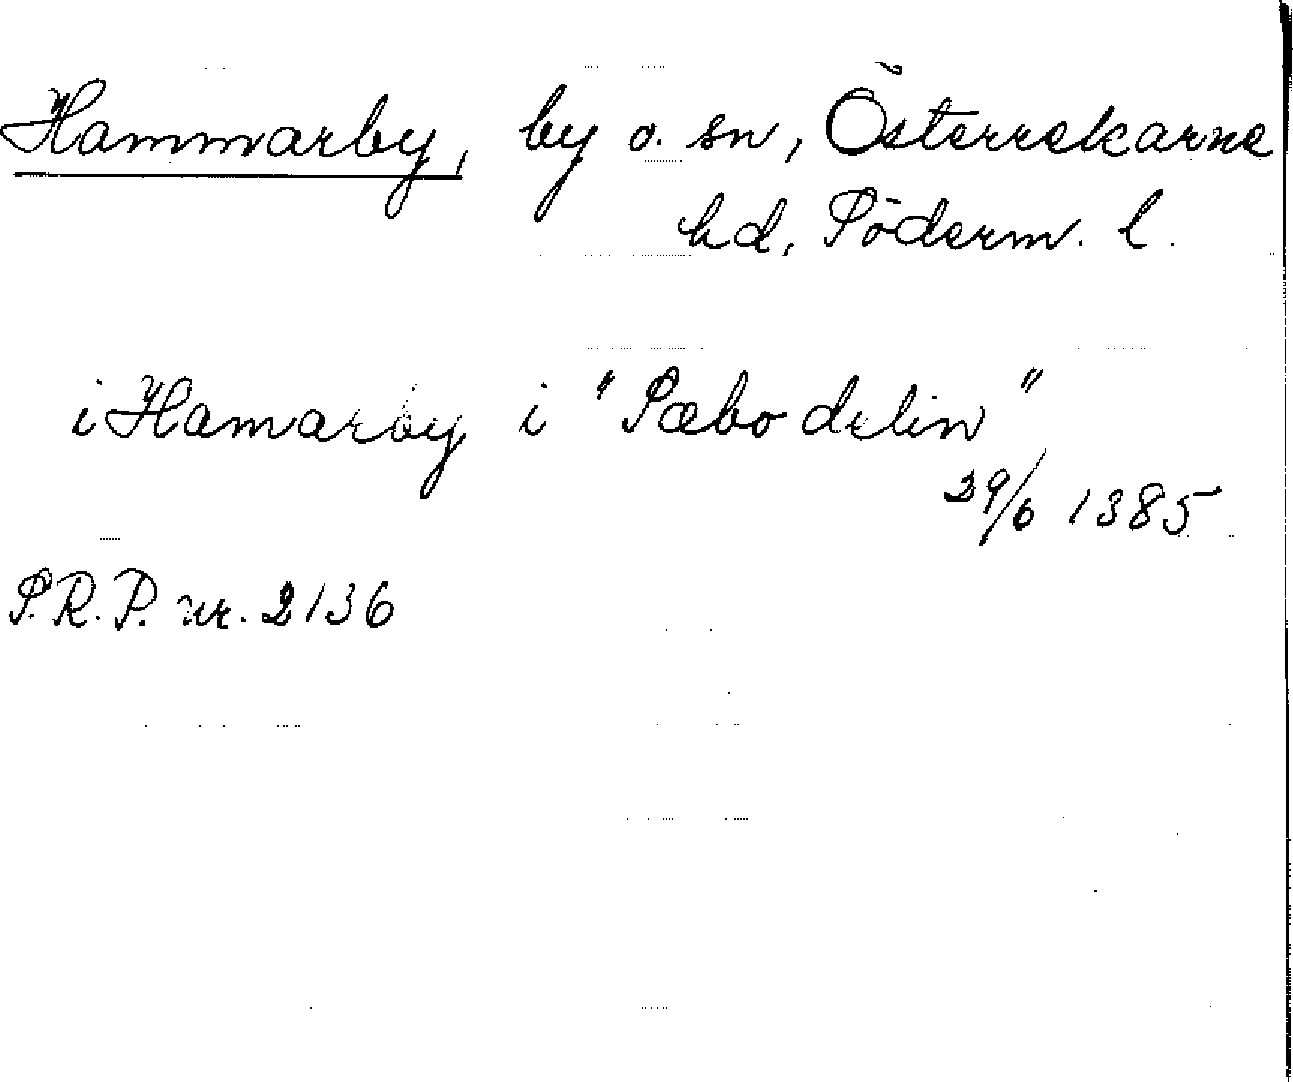 Hammarby, by o. sn, Österrekarne
hd, Söderm. l.
i Hamarby i "Sæbo delin"
29/6 1385
S.R.P. nr. 2136